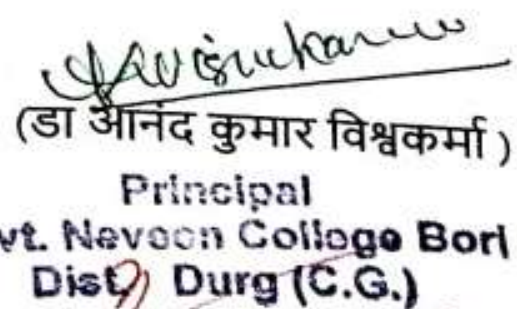 (डा आनंद कुमार विश्वकर्मा )
Principal
vt. Naveen College Bori
Dist. Durg (C.G.)